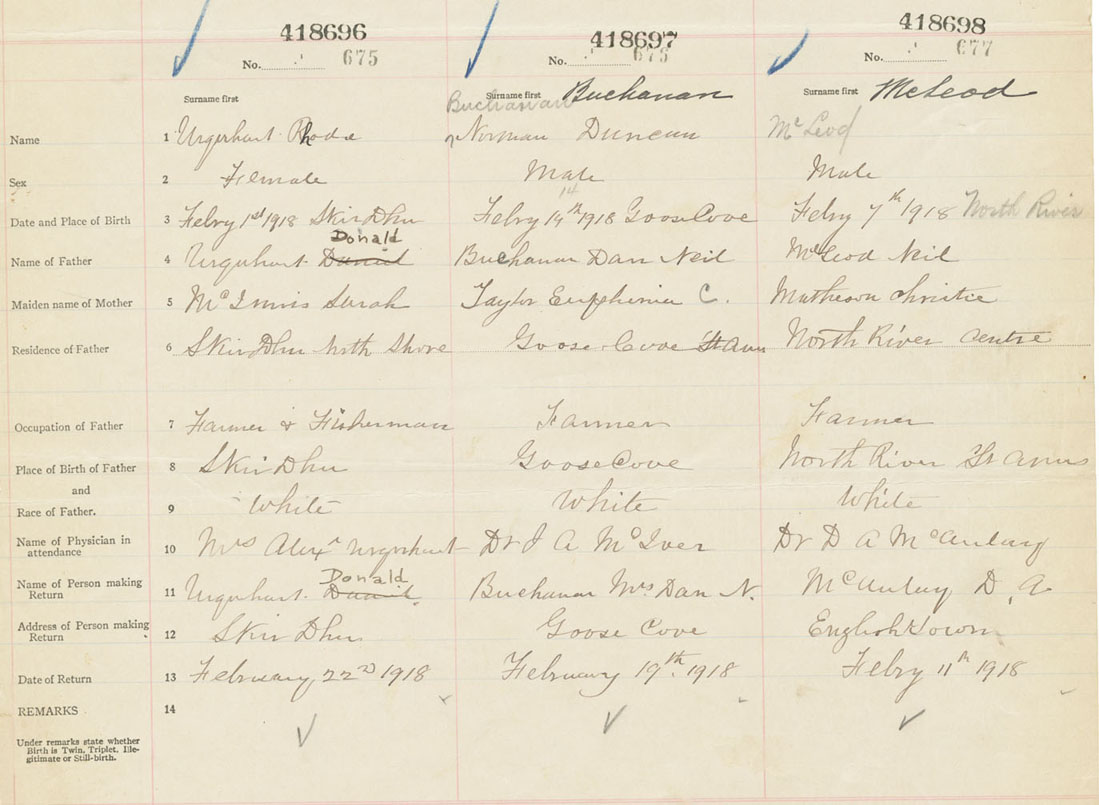 418696 418697 418698
No. 675 No. 676 No. 677
Surname first Surname first Buchanan Surname first McLeod
Buchanan McLeod
Name 1 Urquhart Rhoda Norman Duncan
Sex 2 Female Male Male
14
Date and Place of Birth 3 Febry 1st 1918 Skir Dhu Febry 14th 1918 Goose Cove Febry 7th 1918 North River
Donald
Name of Father 4 Urquhart Daniel Buchanan Dan Neil McLeod Neil
Maiden name of Mother 5 McInnis Sarah Taylor Euphemia C. Matheson Christie
Residence of Father 6 Skir Dhu North Shore Goose Cove St Anns North River Centre
Occupation of Father 7 Farmer & Fisherman Farmer Farmer
Place of Birth of Father 8 Skir Dhu Goose Cove North River St Anns
and
Race of Father. 9 White White White
Name of Physician in
attendance 10 Mrs Alexr Urquhart Dr J A McIver Dr D A McAulay
Donald
Name of Person making
Return 11 Urquhart Daniel Buchanan Mrs Dan N. McAulay D, A
Address of Person making
Return 12 Skir Dhu Goose Cove Englishtown
Date of Return 13 February 22nd 1918 February 19th. 1918 Febry 11th 1918
REMARKS 14
Under remarks state whether
Birth is Twin, Triplet, Ille-
gitimate or Still-birth.